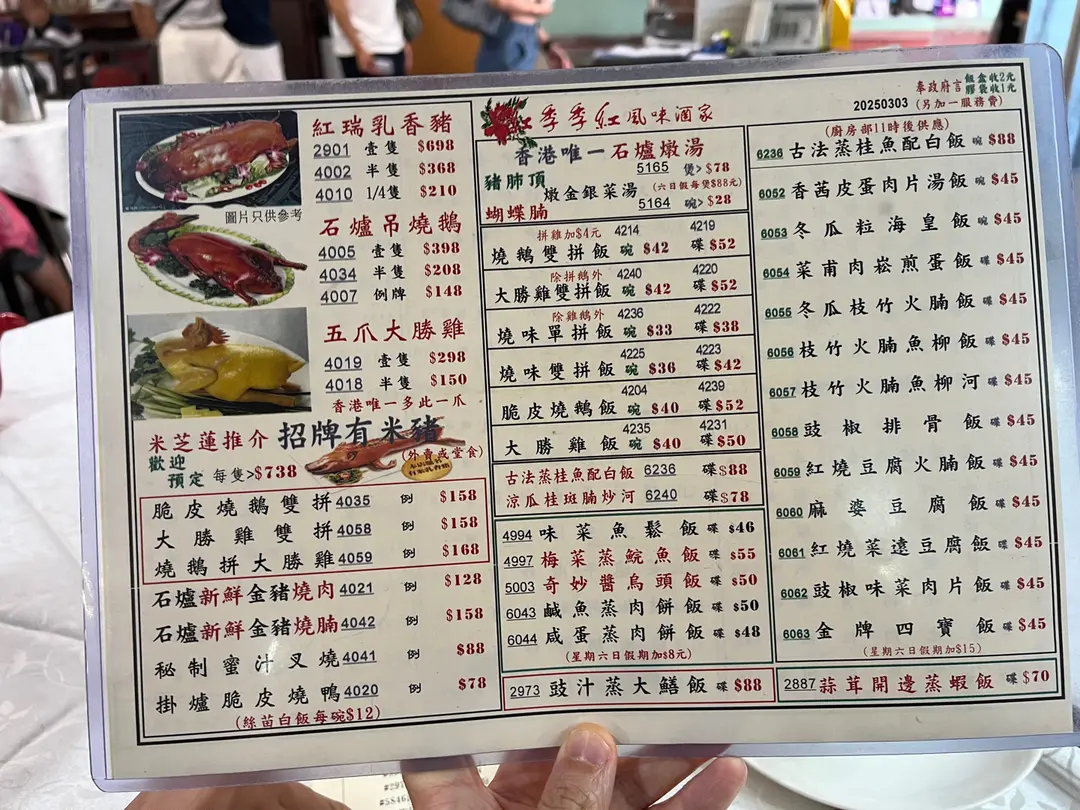 奉政府言 飯盒收2元
膠袋收1元
20250303 (另加一服務費)
紅瑞乳香豬
2901 壹隻 $698
4002 半隻 $368
4010 1/4隻 $210
圖片只供參考
石爐吊燒鵝
4005 壹隻 $398
4034 半隻 $208
4007 例牌 $148
五爪大勝雞
4019 壹隻 $298
4018 半隻 $150
香港唯一多此一爪
米芝蓮推介 招牌有米豬
(外賣或堂食)
歡迎預定 每隻>$738
脆皮燒鵝雙拼 4035 例 $158
大勝雞雙拼 4058 例 $158
燒鵝拼大勝雞 4059 例 $168
石爐新鮮金豬燒肉 4021 例 $128
石爐新鮮金豬燒腩 4042 例 $158
秘制蜜汁叉燒 4041 例 $88
掛爐脆皮燒鴨 4020 例 $78
(絲苗白飯每碗$12)
紅季季紅風味酒家
香港唯一石爐燉湯
豬肺頂 5165 煲>$78
燉金銀菜湯 (六日假每煲$88元)
蝴蝶腩 5164 碗>$28
拼雞加$4元 4214 4219
燒鵝雙拼飯 碗 $42 碟 $52
除拼鵝外 4240 4220
大勝雞雙拼飯 碗 $42 碟 $52
除雞鵝外 4236 4222
燒味單拼飯 碗 $33 碟 $38
4225 4223
燒味雙拼飯 碗 $36 碟 $42
4204 4239
脆皮燒鵝飯 碗 $40 碟 $52
4235 4231
大勝雞飯 碗 $40 碟 $50
古法蒸桂魚配白飯 6236 碟 $88
涼瓜桂斑腩炒河 6240 碟 $78
4994 味菜魚鬆飯 碟 $46
4997 梅菜蒸鯇魚飯 碟 $55
5003 奇妙醬烏頭飯 碟 $50
6043 鹹魚蒸肉餅飯 碟 $50
6044 咸蛋蒸肉餅飯 碟 $48
(星期六日假期加$8元)
2973 豉汁蒸大鱔飯 碟 $88
(廚房部11時後供應)
6236 古法蒸桂魚配白飯 碗 $88
6052 香茜皮蛋肉片湯飯 碗 $45
6053 冬瓜粒海皇飯 碗 $45
6054 菜甫肉崧煎蛋飯 碟 $45
6055 冬瓜枝竹火腩飯 碟 $45
6056 枝竹火腩魚柳飯 碟 $45
6057 枝竹火腩魚柳河 碟 $45
6058 豉椒排骨飯 碟 $45
6059 紅燒豆腐火腩飯 碟 $45
6060 麻婆豆腐飯 碟 $45
6061 紅燒菜遠豆腐飯 碟 $45
6062 豉椒味菜肉片飯 碟 $45
6063 金牌四寶飯 碟 $45
(星期六日假期加$15)
2887 蒜茸開邊蒸蝦飯 碟 $70